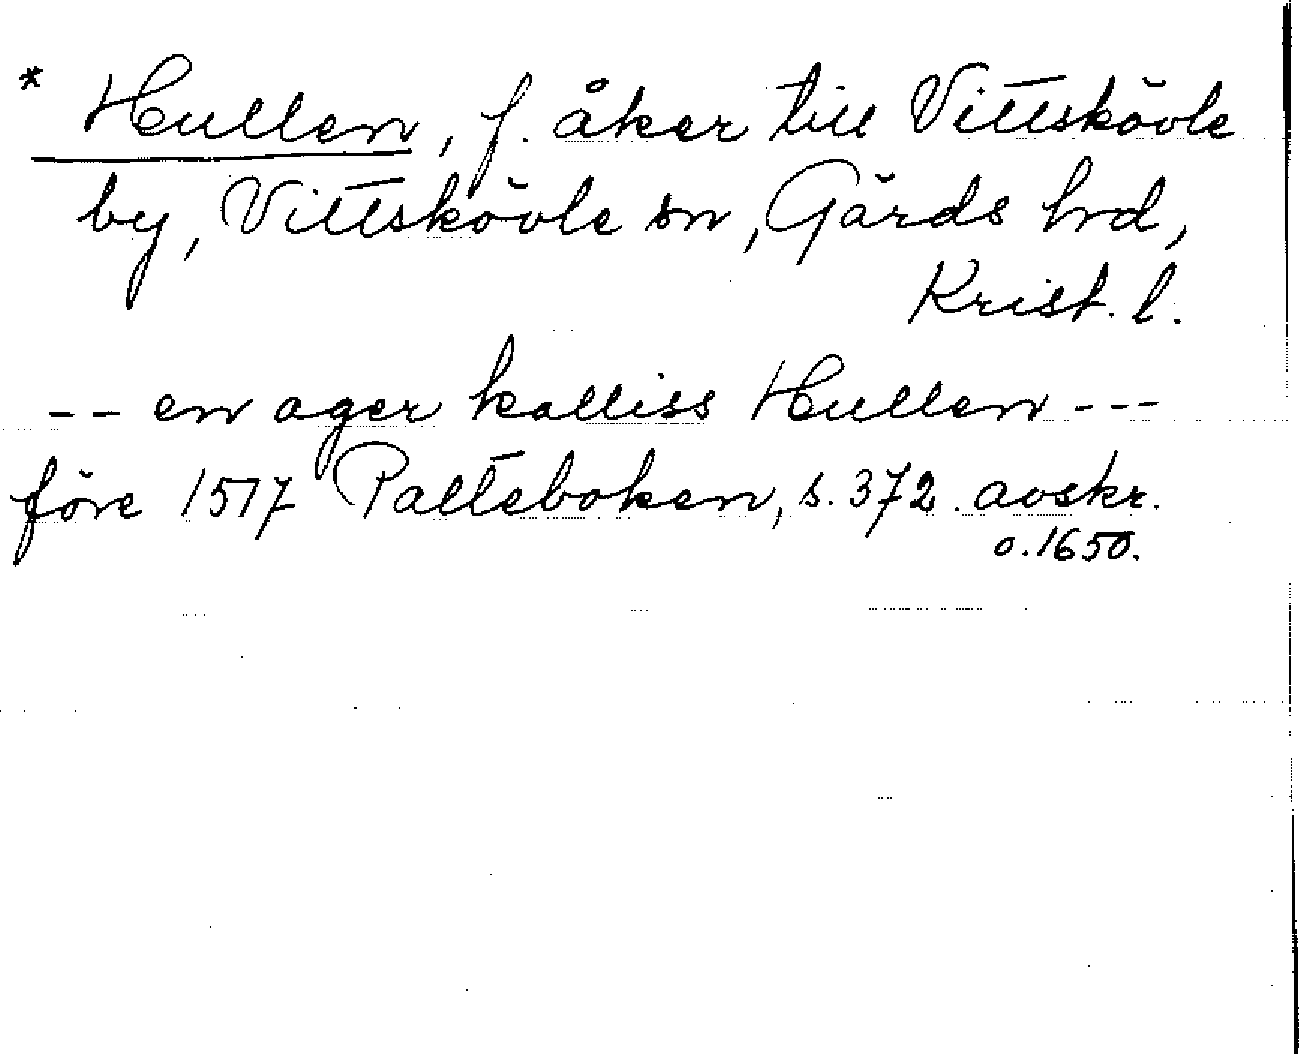 * Hullen, f. åker till Vittskövle
by, Vittskövle sn, Gärds hd,
Krist. l.
-- en ager kalliss Hullen ---
före 1517 Palteboken, s. 372. avskr.
o. 1650.